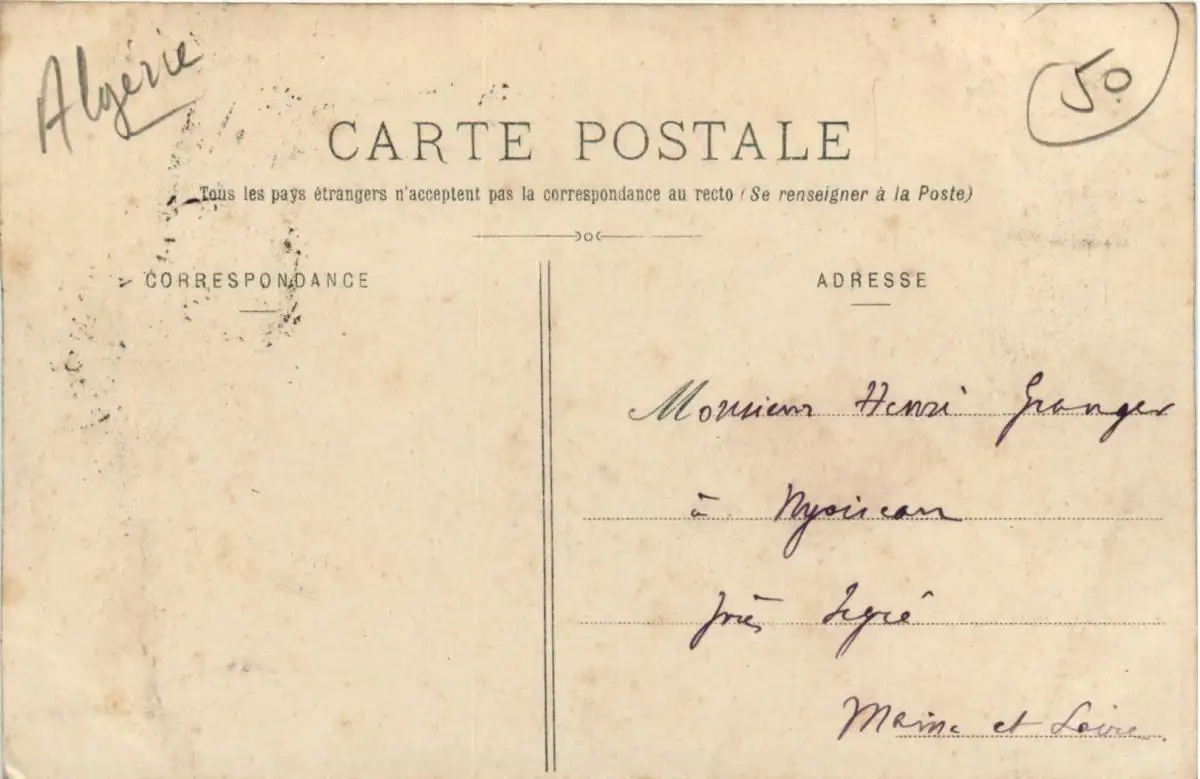 Algérie
50
CARTE POSTALE
Tous les pays étrangers n'acceptent pas la correspondance au recto (Se renseigner à la Poste)
CORRESPONDANCE
ADRESSE
Monsieur Henri Granger
à Nyoiseau
près Segré
Maine et Loire